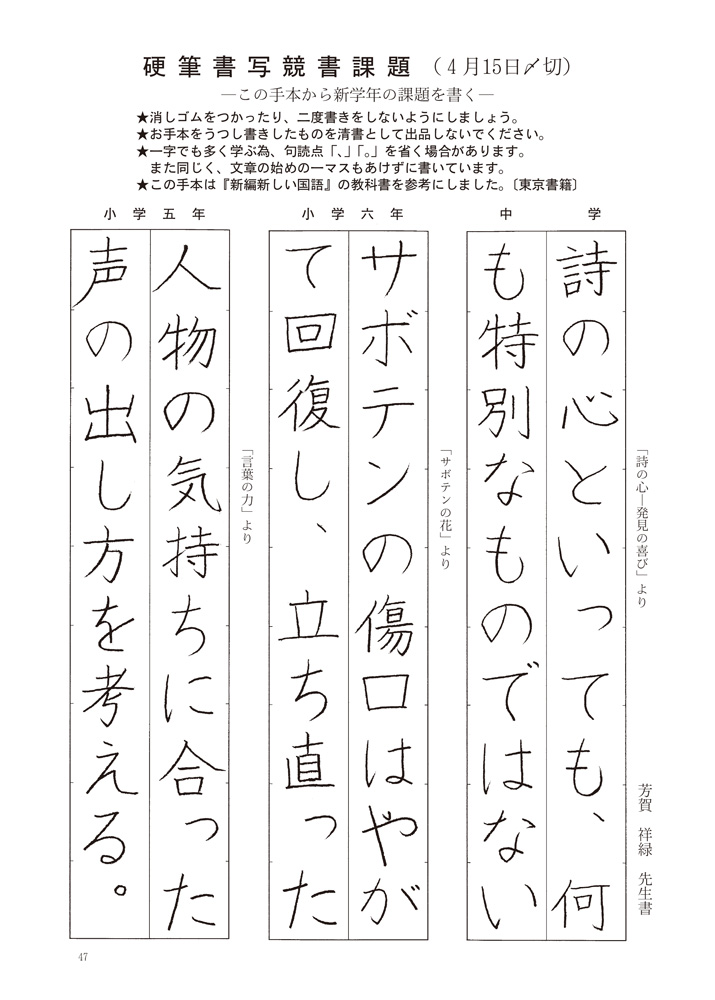 硬筆書写競書課題（4月15日〆切）
―この手本から新学年の課題を書く―
★消しゴムをつかったり、二度書きをしないようにしましょう。
★お手本をうつし書きしたものを清書として出品しないでください。
★一字でも多く学ぶ為、句読点「、」「。」を省く場合があります。
また同じく、文章の始めの一マスもあけずに書いています。
★この手本は『新編新しい国語』の教科書を参考にしました。〔東京書籍〕
中学
「詩の心―発見の喜び」より
芳賀　祥緑　先生書
詩の心といっても、何
も特別なものではない
小学六年
「サボテンの花」より
サボテンの傷口はやが
て回復し、立ち直った
小学五年
「言葉の力」より
人物の気持ちに合った
声の出し方を考える。
47